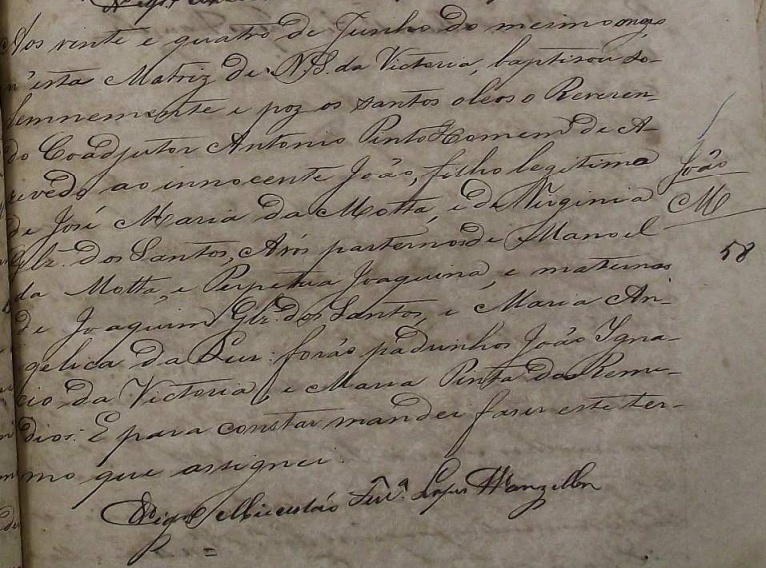 Aos vinte e quatro de Junho do mesmo anno
n'esta Matriz de N. S. da Victoria, baptisou so-
lemnemente e poz os santos oleos o Reveren-
do Coadjutor Antonio Pinto Homem de A-
zevedo ao innocente João, filho legitimo
de José Maria da Motta, e de Virginia
Glz. dos Santos, Avós paternos de Manoel
da Motta, e Perpetua Joaquina, e maternos
de Joaquim Glz. dos Santos, e Maria An-
gelica da : forão padrinhos João Igna-
cio da Victoria, e Maria Pinta dos Reme-
dios. E para constar mandei faser este ter-
mo que assignei.
Vigr.º Miecesláo Ferr.ª Lopes Wanzeller
João
M
58